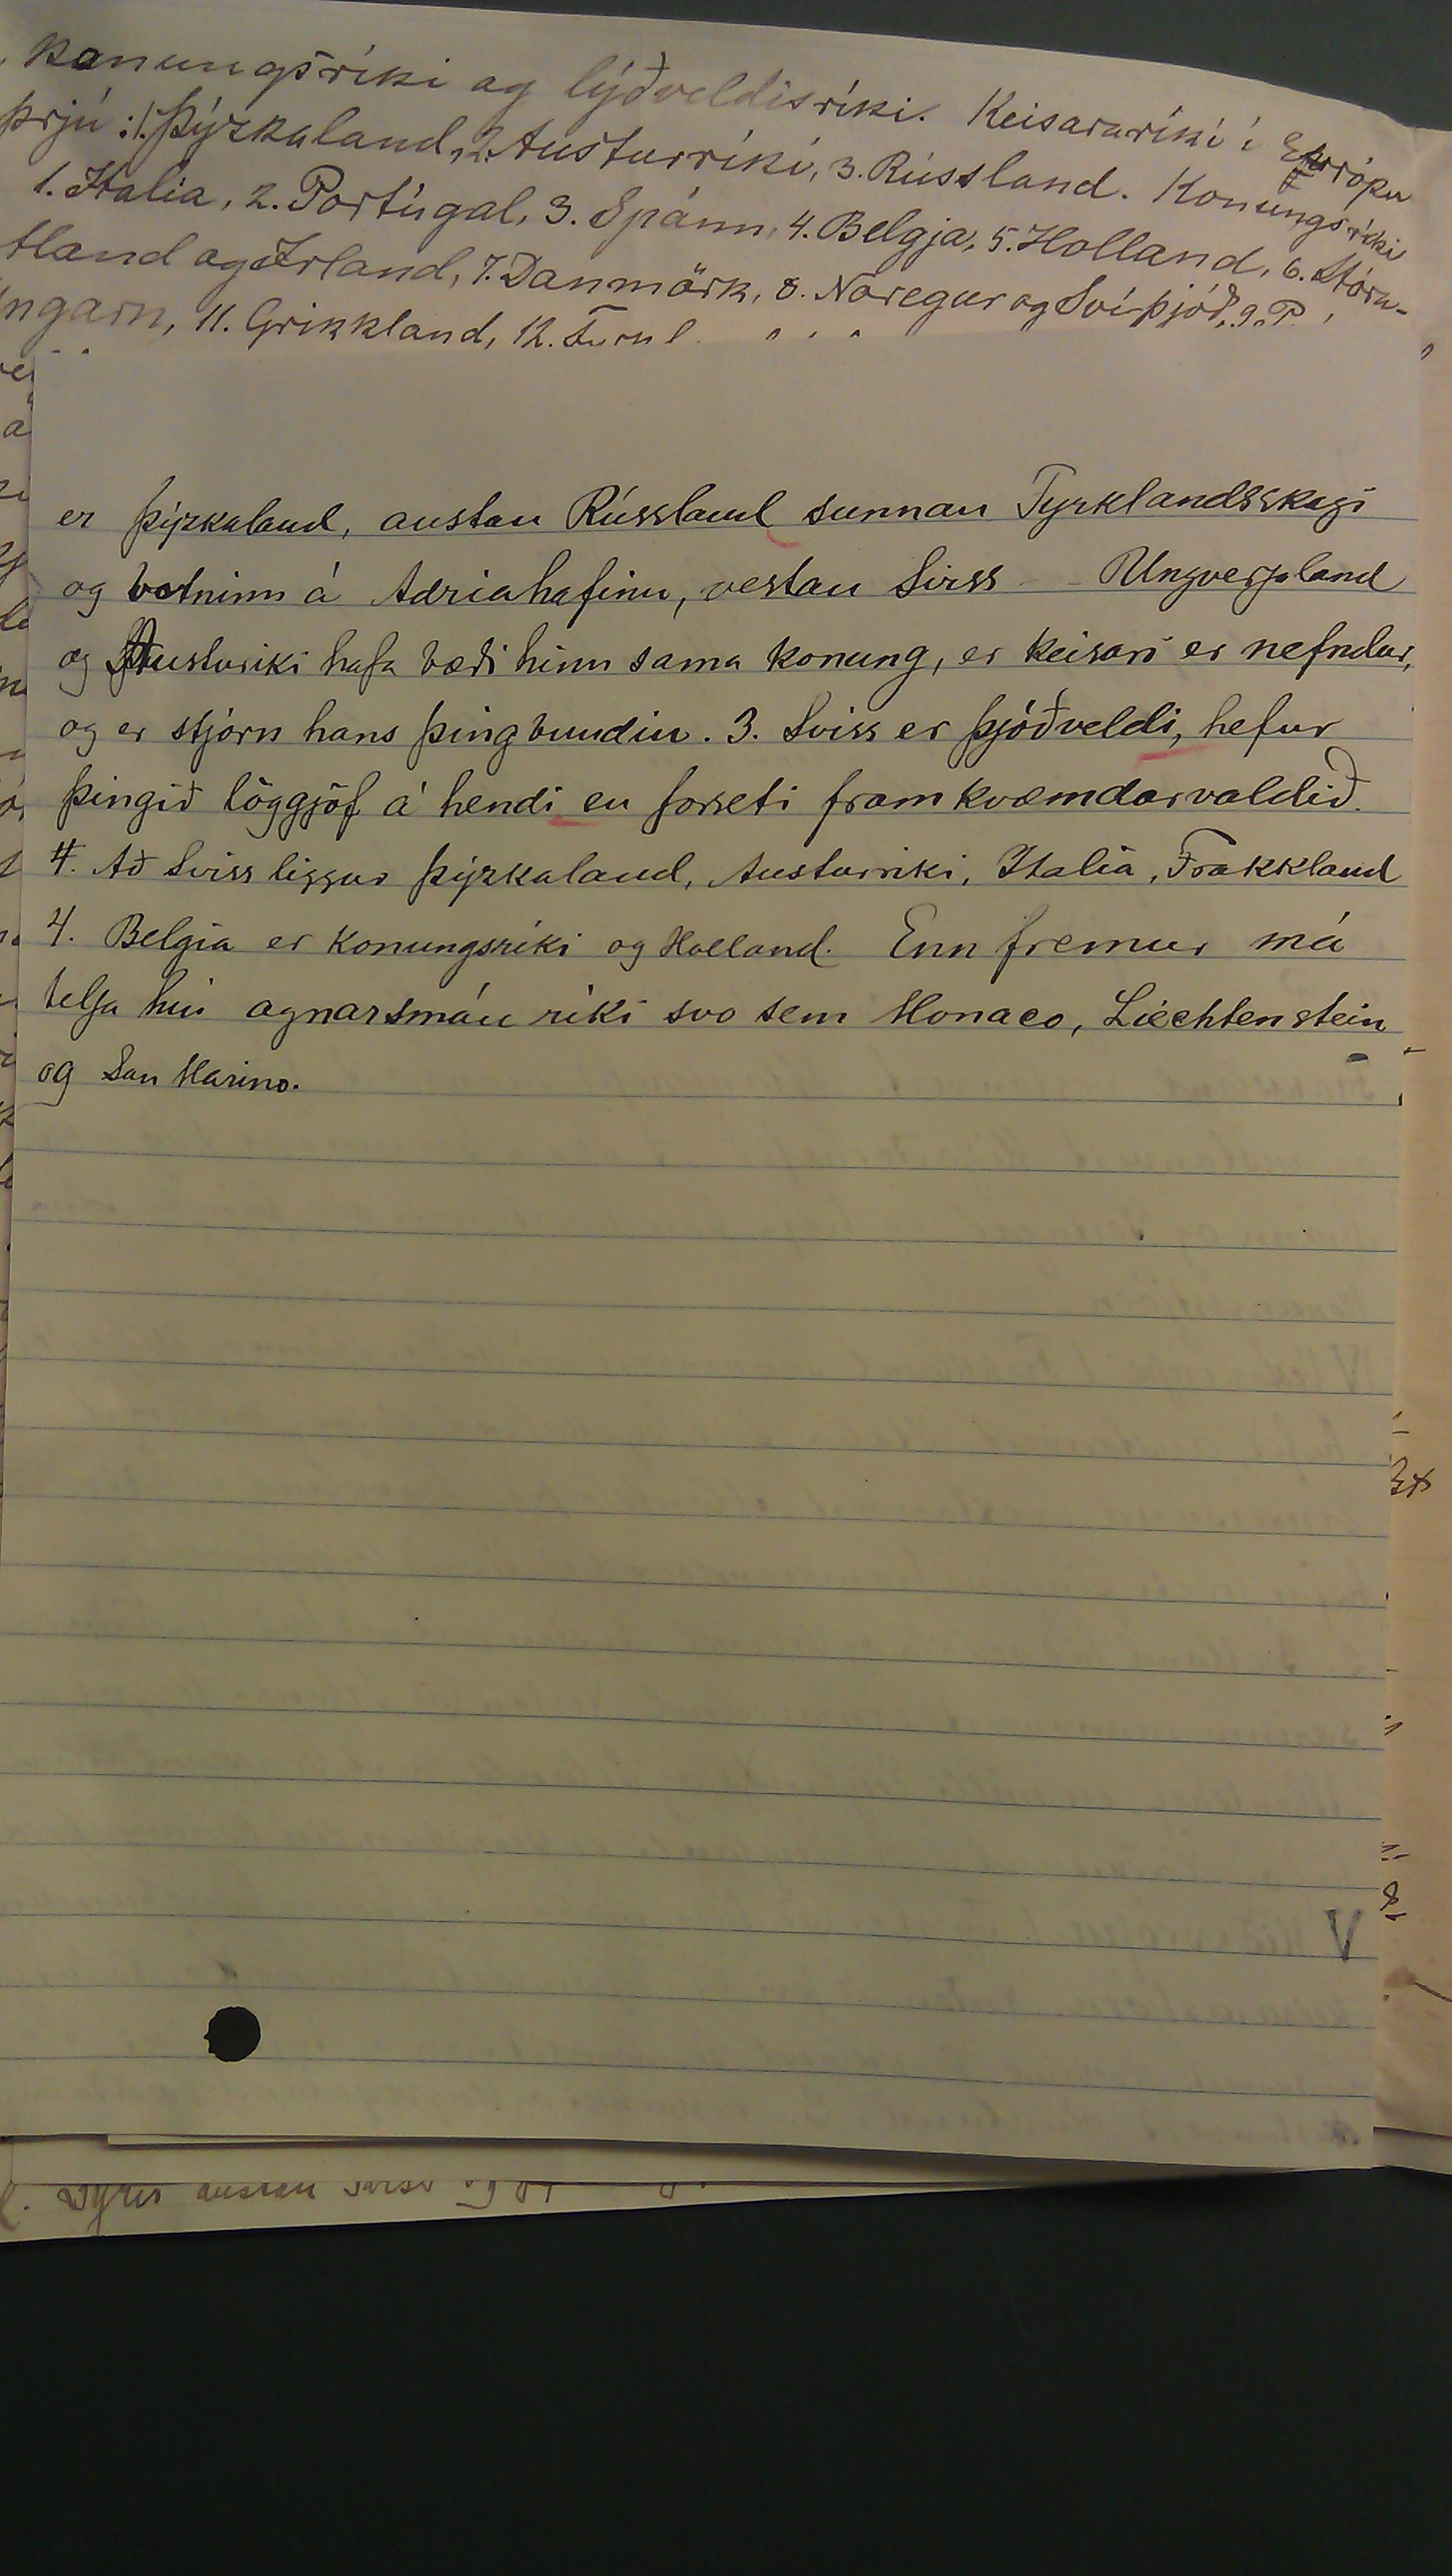 konungsríki og lýðveldisríki. Keisararíki í Evrópu
þrjú: 1. Þýzkaland, 2. Austurríki, 3. Rússland. Konungsríki
1. Italía, 2. Portúgal, 3. Spánn, 4. Belgja, 5. Holland, 6. Stóra-
tland og Irland, 7. Danmörk, 8. Noregur og Svíþjóð, 9. P
ngarn, 11. Grikkland, 12.
er Þýzkaland, austan Rússland sunnan Tyrklandsskagi
og botninn á Adriahafinu, vestan Sviss - Ungverjaland
og Austuriki hafa bæði hinn sama konung, er keisari er nefndur,
og er stjórn hans þingbundin. 3. Sviss er þjóðveldi, hefur
þingið löggjöf á hendi en forseti framkvæmdarvaldið.
4. Að Sviss liggur Þýzkaland, Austurriki, Italia, Frakkland
4. Belgia er konungsríki og Holland. Enn fremur má
telja hin agnarsmáu ríki svo sem Monaco, Liechtenstein
og San Marino.
V